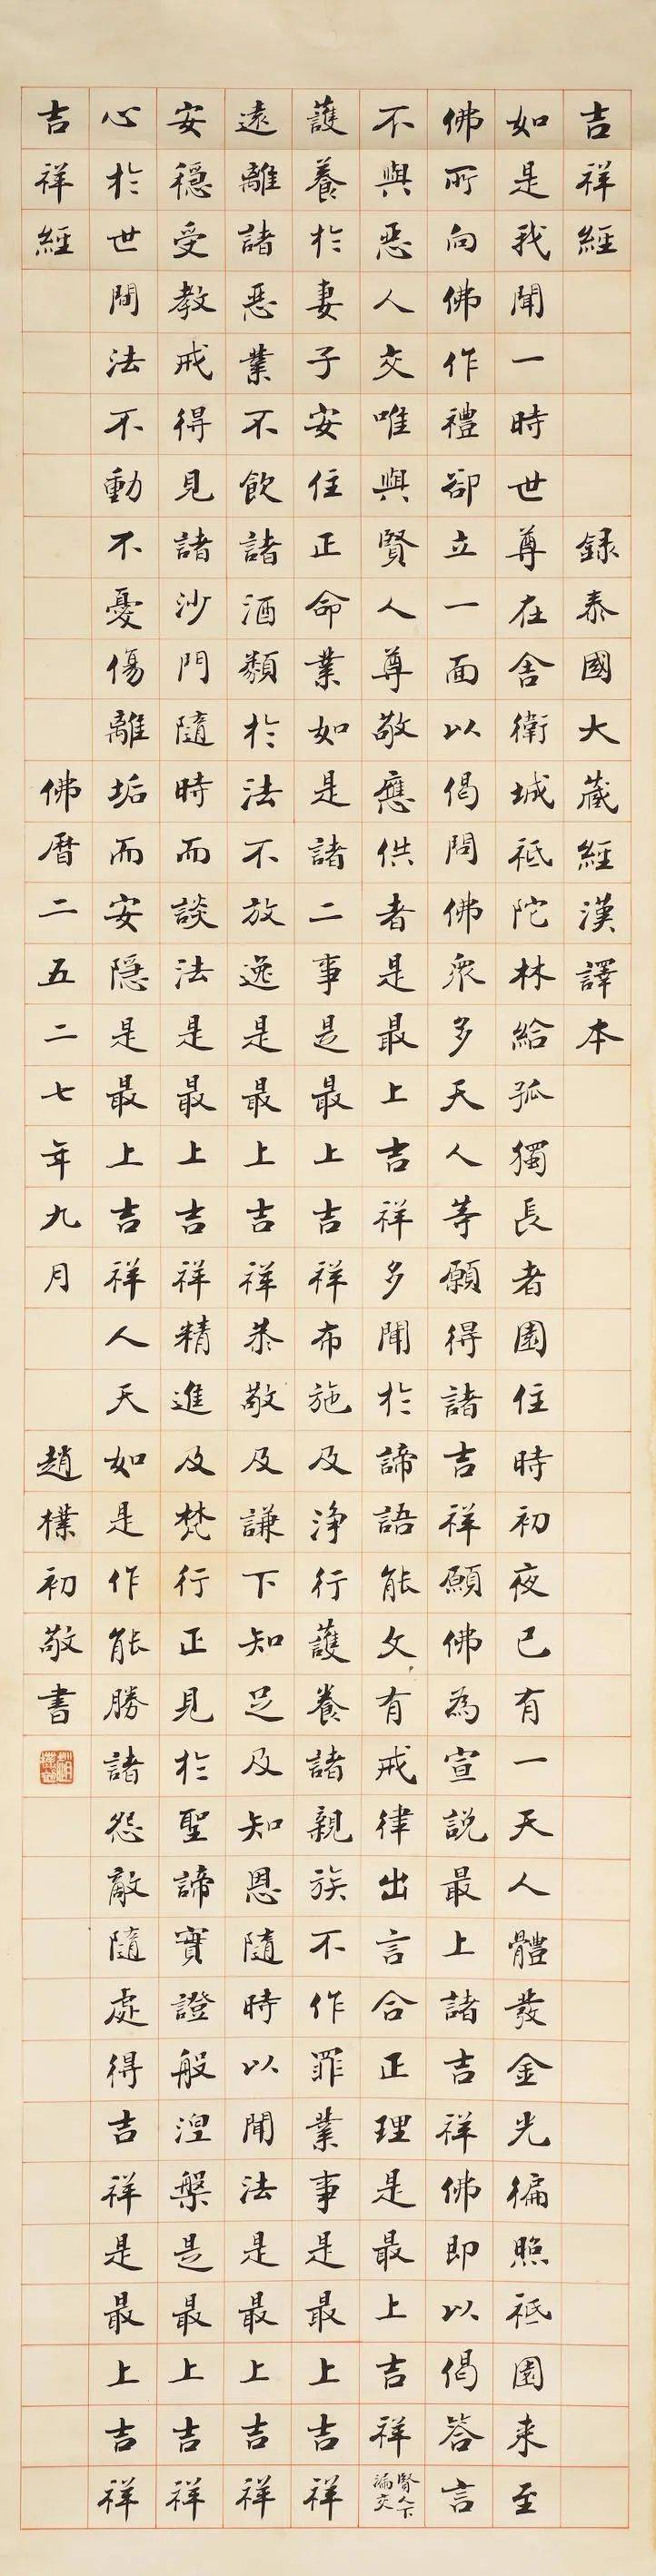 吉祥經 録泰國大藏經漢譯本
如是我聞一時世尊在舍衛城祇陀林給孤獨長者園住時初夜已有一天人體發金光徧照祇園来至
佛所向佛作禮卻立一面以偈問佛衆多天人等願得諸吉祥願佛為宣説最上諸吉祥佛即以偈答言
不與惡人交唯與賢人尊敬應供者是最上吉祥多聞於諦語能文有戒律出言合正理是最上吉祥
賢人下漏交
護養於妻子安住正命業如是諸二事是最上吉祥布施及淨行護養諸親族不作罪業事是最上吉祥
遠離諸惡業不飲諸酒類於法不放逸是最上吉祥恭敬及謙下知足及知恩隨時以聞法是最上吉祥
安穩受教戒得見諸沙門隨時而談法是最上吉祥精進及梵行正見於聖諦實證般涅槃是最上吉祥
心於世間法不動不憂傷離垢而安隐是最上吉祥人天如是作能勝諸怨敵隨處得吉祥是最上吉祥
吉祥經 佛曆二五二七年九月 趙樸初敬書